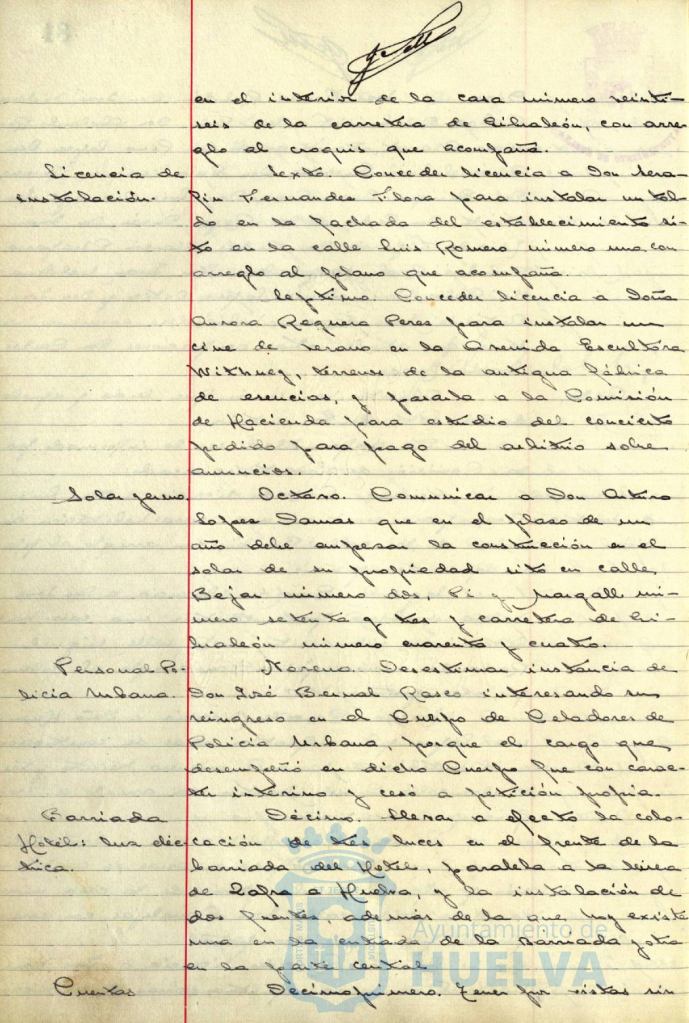 en el interior de la casa número veinti-
seis de la carretera de Gibraleón, con arre-
glo al croquis que acompaña.
Licencia de
instalación.
Sexto. Conceder licencia a Don Sera-
fin Fernandez Flora para instalar un tol-
do en la fachada del establecimiento si-
to en la calle Luis Romero número uno con
arreglo al plano que acompaña.
Septimo. Conceder licencia a Doña
Aurora Reguera Peres para instalar un
cine de verano en la Avenida Escultora
Withney, terrenos de la antigua fábrica
de esencias, y pasarla a la Comisión
de Hacienda para estudio del concierto
pedido para pago del arbitrio sobre
anuncios.
Solar yermo.
Octavo. Comunicar a Don Arturo
Lopez Damas que en el plazo de un
año debe empezar la construcción en el
solar de su propiedad sito en calle
Bejar número dos, Pi y Margall nú-
mero setenta y tres y carretera de Gi-
braleón número cuarenta y cuatro.
Personal Po-
licia Urbana.
Noveno. Desestimar instancia de
Don José Bernal Rasco interesando su
reingreso en el Cuerpo de Celadores de
Policia Urbana, porque el cargo que
desempeñó en dicho Cuerpo fue con carac-
ter interino y cesó a petición propia.
Barriada
Hotel: luz eléc-
trica.
Décimo. Llevar a efecto la colo-
cación de tres luces en el frente de la
barriada del Hotel, paralela a la línea
de Zafra a Huelva, y la instalación de
dos fuentes, además de la que hoy existe
una en la entrada de la Barriada y otra
en la parte central
Cuentas
Décimoprimero. Tener por vistas sin
Ayuntamiento de
HUELVA